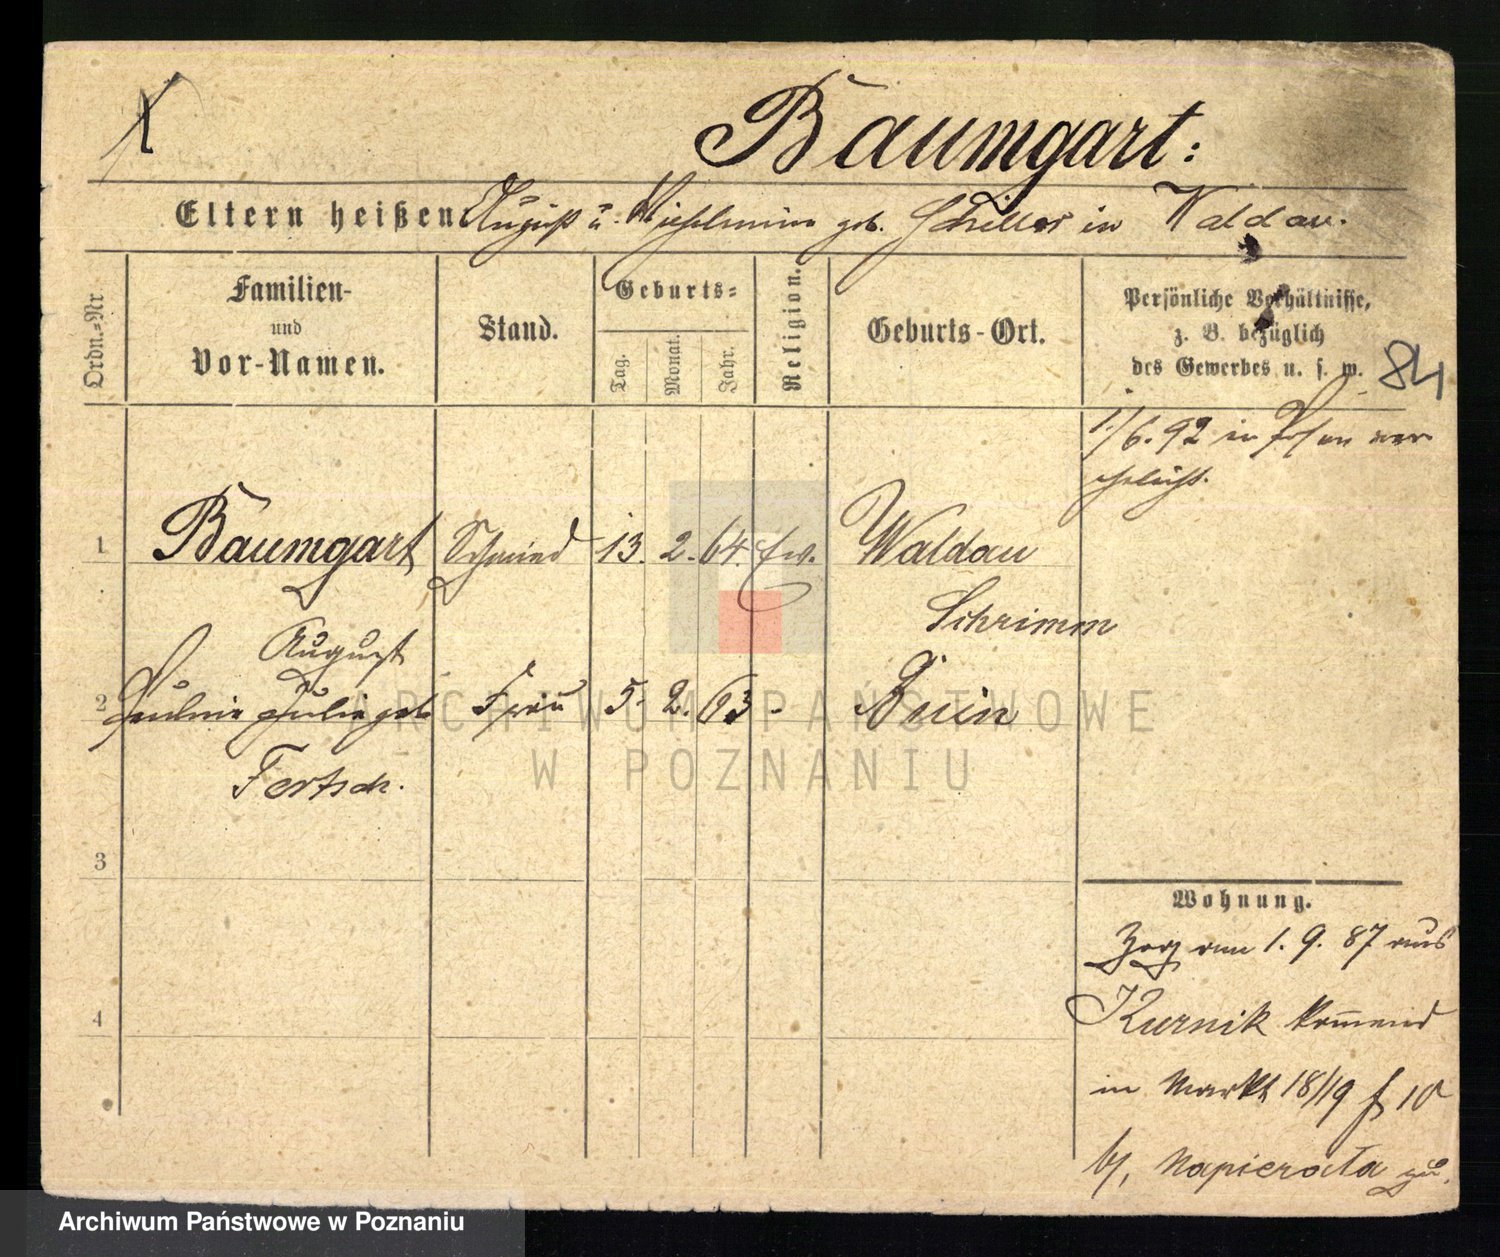 Baumgart:
Eltern heißen August u. Wilhelmine geb. Schiller in Waldau.
Ordn.=Nr
Familien-
und
Vor-Namen.
Stand.
Geburts=
Tag.
Monat.
Jahr.
Religion.
Geburts-Ort.
Persönliche Verhältnisse,
z. B. bezüglich
des Gewerbes u. s. w.
84
1/6. 92 in Posen ver
ehelicht.
1 Baumgart Schmied 13. 2. 64. ev. Waldau
Schrimm
August
2 Paulnie Julie geb Frau 5. 2. 63 Bnin
Fertsch.
3
4
Wohnung.
Zog am 1. 9. 87 aus
Kurnik kommend
in Markt 18/19 10
b/, Napierała zu.
ARCHIWUM PAŃSTWOWE
W POZNANIU
Archiwum Państwowe w Poznaniu